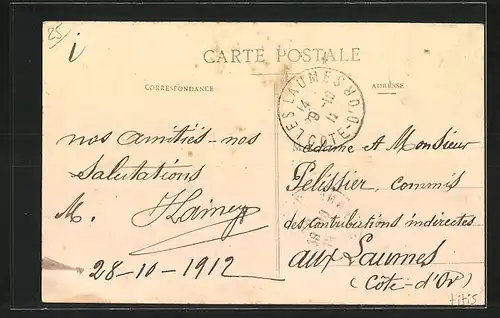 25/
CARTE POSTALE
CORRESPONDANCE
ADRESSE
LES LAUMES
COTE-D'OR
nos amitiés - nos
salutations
M.
28-10-1912
Madame et Monsieur
Pélissier, commis
des contributions indirectes
aux Laumes
(Côte-d'Or)
titis